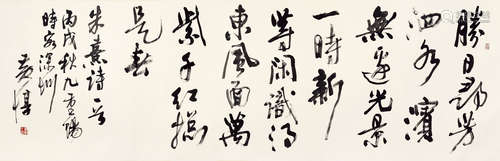 勝日尋芳
泗水濱
無邊光景
一時新
等閑識得
東風面萬
紫千紅總
是春
朱熹詩一首
丙戌秋九重陽
時客深圳
黃惇